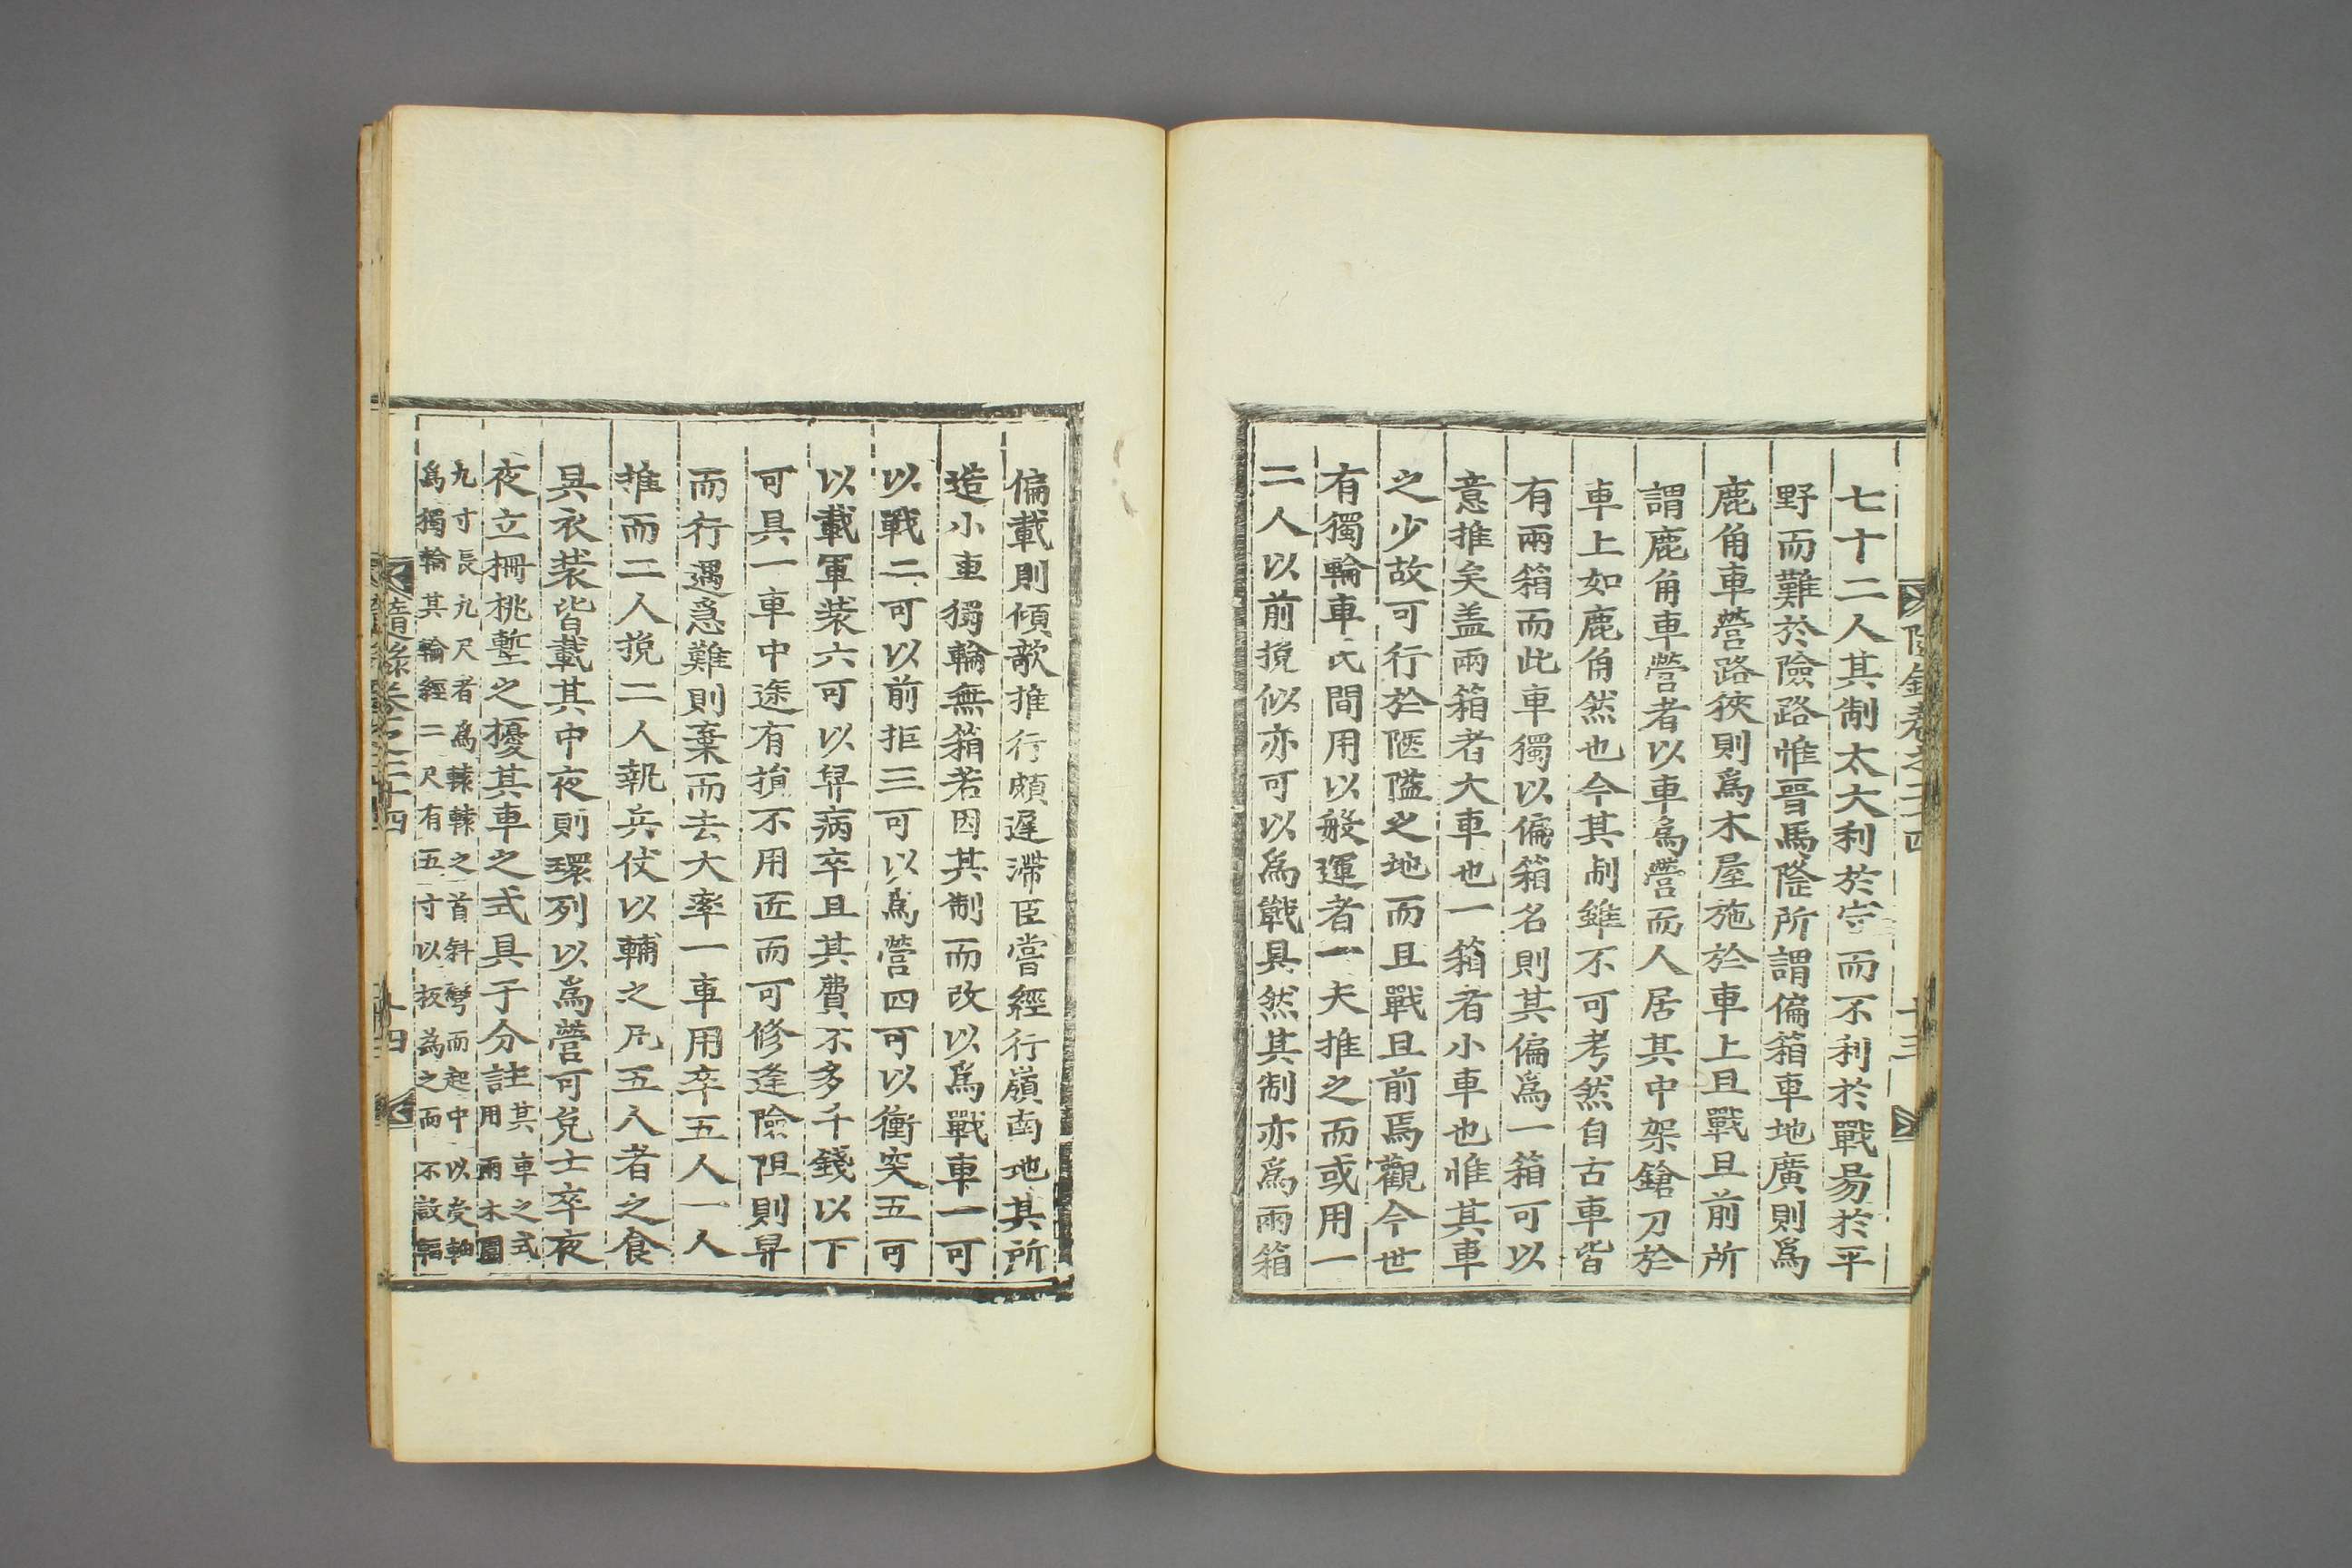 隨錄卷之二十四
十三
七十二人其制太大利於守而不利於戰易於平
野而難於險路惟晋馬隆所謂偏箱車地廣則爲
鹿角車營路狹則爲木屋施於車上且戰且前所
謂鹿角車營者以車爲營而人居其中架鎗刀於
車上如鹿角然也今其制雖不可考然自古車皆
有兩箱而此車獨以偏箱名則其偏爲一箱可以
意推矣盖兩箱者大車也一箱者小車也惟其車
之少故可行於陿隘之地而且戰且前焉觀今世
有獨輪車民間用以般運者一夫推之而或用一
二人以前挽似亦可以爲戰具然其制亦爲兩箱
偏載則傾欹推行頗遲滯臣嘗經行嶺南地其所
造小車獨輪無箱若因其制而改以爲戰車一可
以戰二可以前拒三可以爲營四可以衝突五可
以載軍裝六可以舁病卒且其費不多千錢以下
可具一車中途有損不用匠而可修逢險阻則舁
而行遇急難則棄而去大率一車用卒五人一人
推而二人挽二人執兵仗以輔之凡五人者之食
具衣裝皆載其中夜則環列以爲營可免士卒夜
夜立柵挑塹之擾其車之式具于分註其車之式
用兩木圓
九寸長九尺者爲轅轅之首斜彎而起中以受軸
爲獨輪其輪經二尺有五寸以板為之而不設輻
隨錄卷之二十四
十四